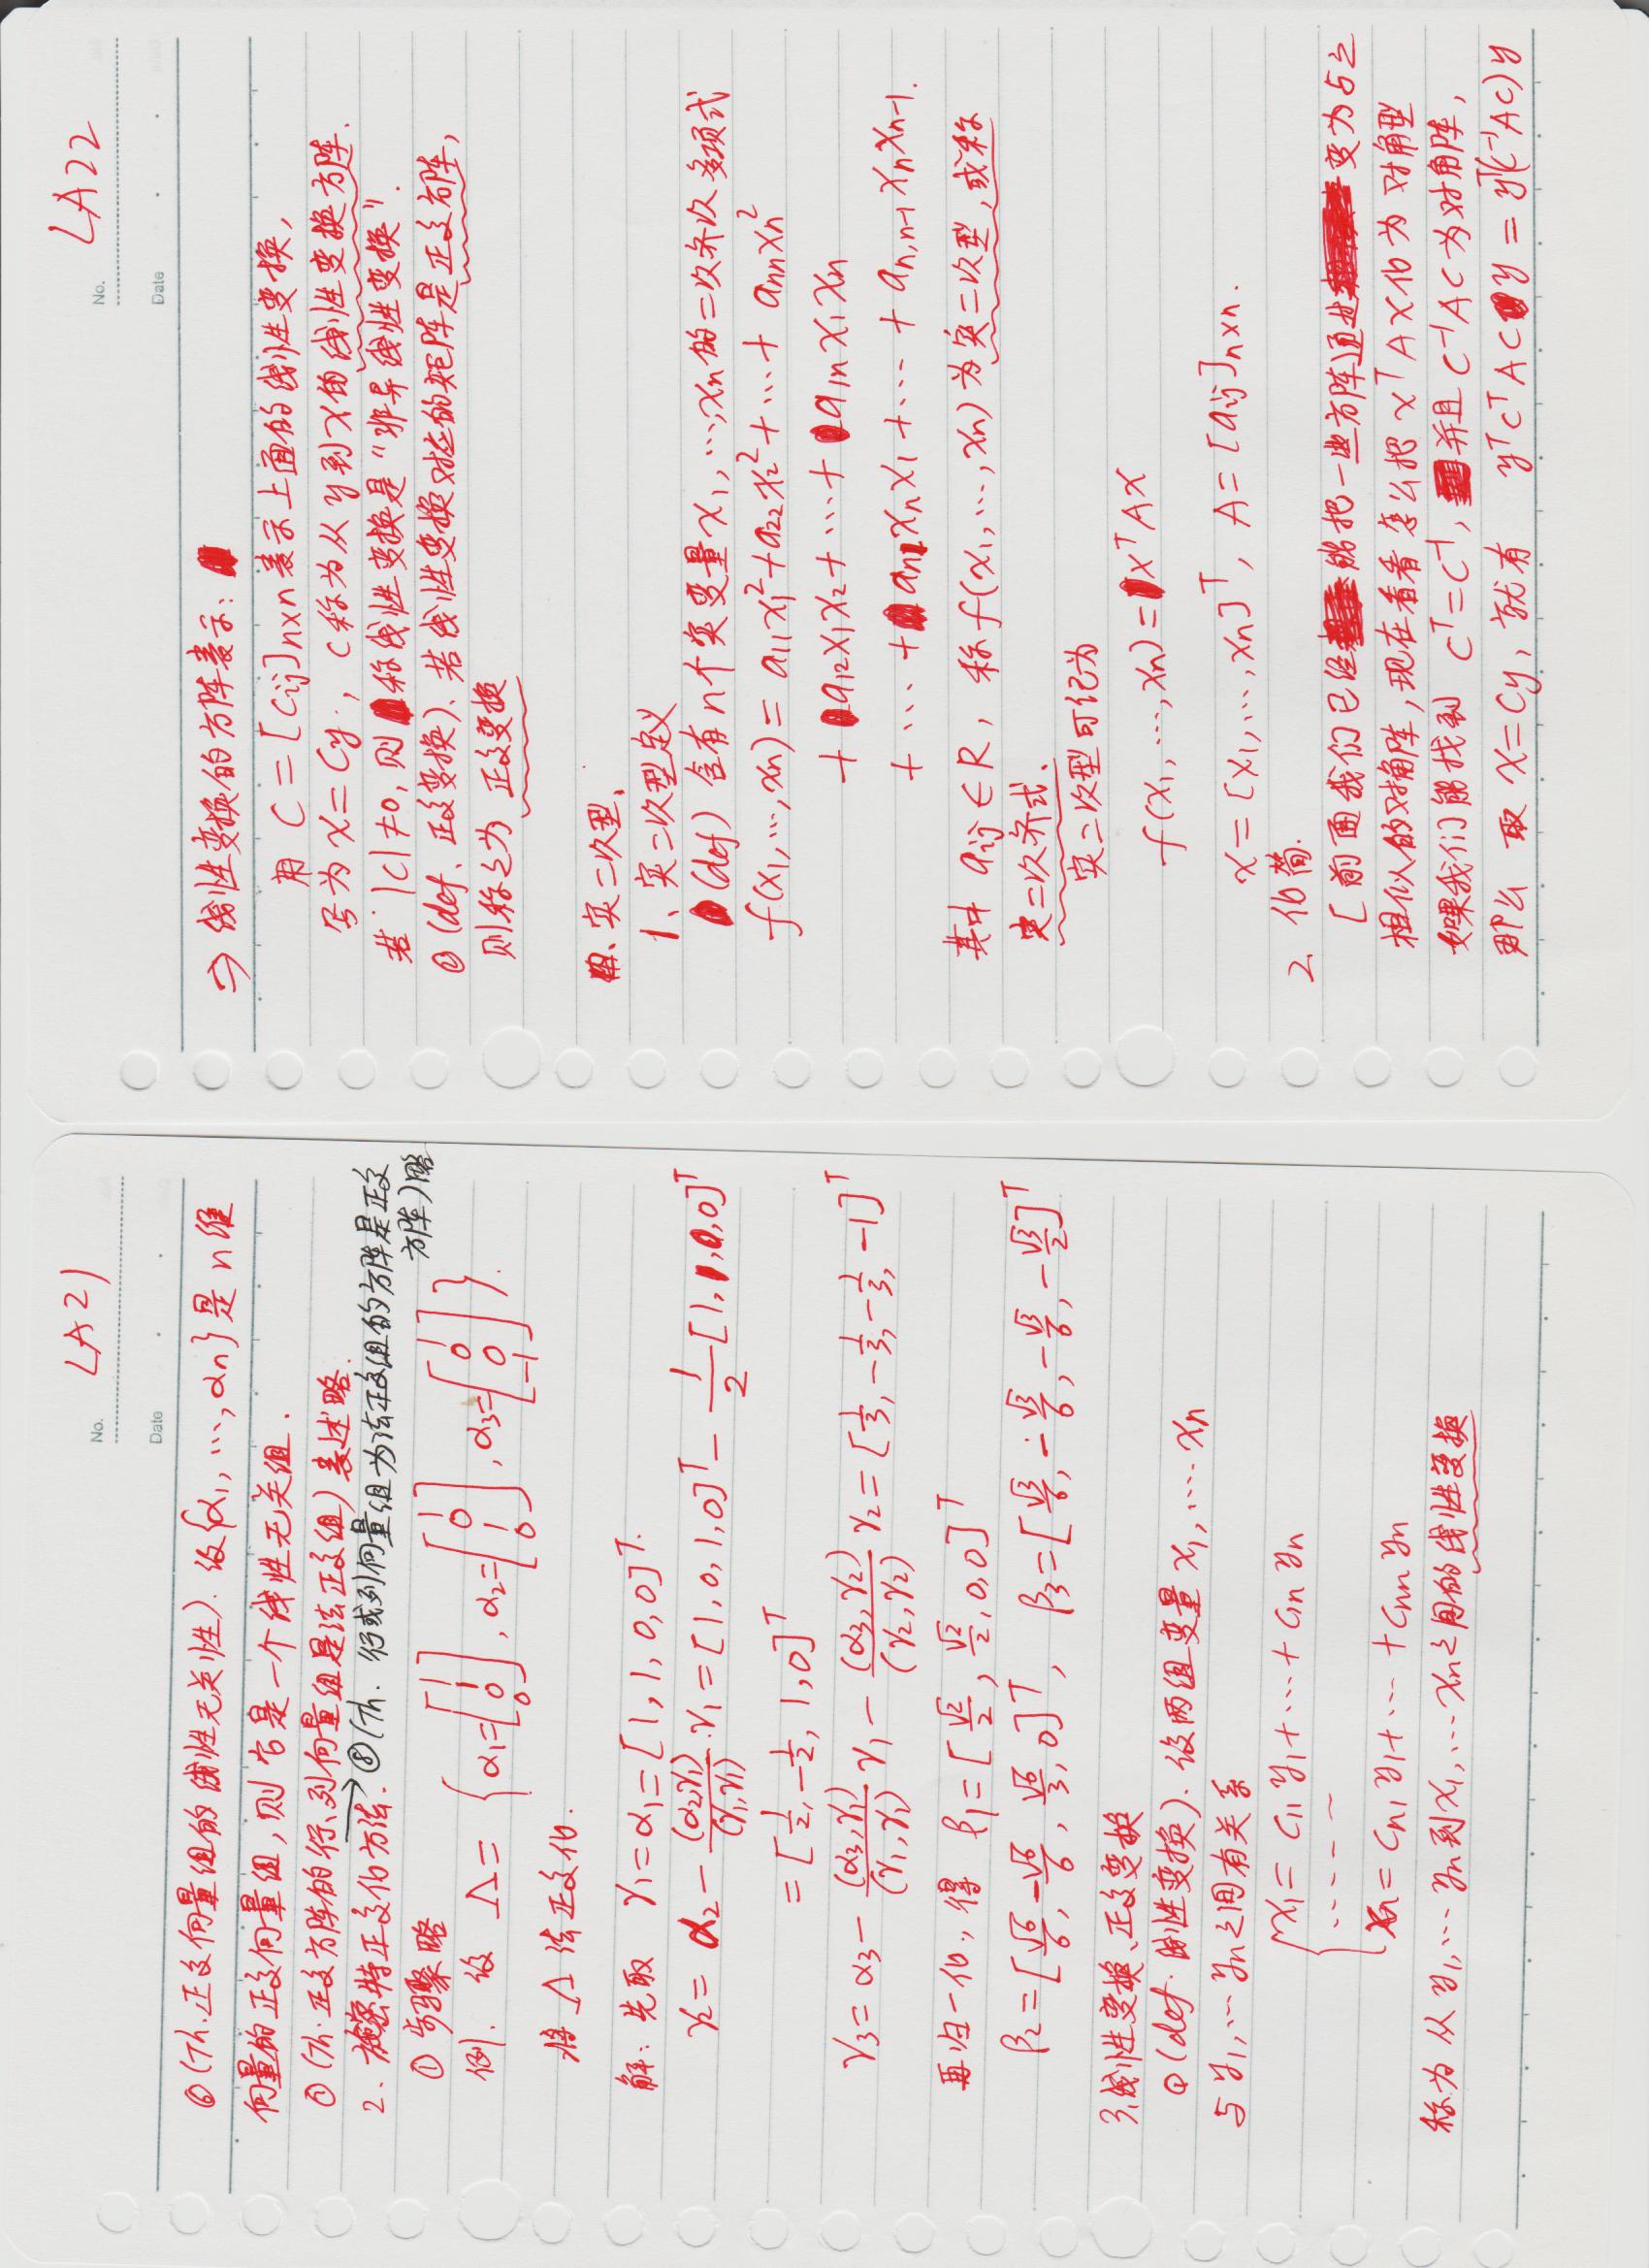 No. LA21
Date
⑥(Th.正交向量组的线性无关性).设{α1,…,αn}是n维
向量的正交向量组,则它是一个线性无关组.
⑦(Th.正交方阵的行、列向量组是法正交组)表述略.
2.施密特正交化方法. → ⑧(Th. 行或列向量组为法正交组的方阵是正交
方阵)略
①步骤略
例. 设 Λ= {α1=[1 1 0 0], α2=[1 0 1 0], α3=[1 0 0 -1]}.
将Λ法正交化.
解:先取 γ1=α1=[1,1,0,0]ᵀ.
γ2= α2 - (α2,γ1)/(γ1,γ1)·γ1=[1,0,1,0]ᵀ- 1/2[1,1,0,0]ᵀ
=[1/2,-1/2,1,0]ᵀ
γ3=α3- (α3,γ1)/(γ1,γ1) γ1 - (α3,γ2)/(γ2,γ2) γ2=[1/3,-1/3,-1/3,-1]ᵀ
再归一化,得 β1=[√2/2,√2/2,0,0]ᵀ
β2=[√6/6,-√6/6,√6/3,0]ᵀ, β3=[√3/6,-√3/6,-√3/6,-√3/2]ᵀ
3.线性变换、正交变换
①(def.线性变换).设两组变量x1,…xn
与y1,…yn之间有关系
x1= c11 y1+…+ c1n yn
……
xn= cn1 y1+…+cnn yn
称为从y1,…yn到x1,…xn之间的线性变换
No. LA22
Date
⇒ 线性变换的方阵表示:
用 C=[cij]n×n表示上面的线性变换,
写为x=Cy., C称为从y到x的线性变换方阵.
若 |C|≠0,则称线性变换是“非异线性变换”.
②(def、正交变换).若线性变换对应的矩阵是正交方阵,
则称之为 正交变换
四、实二次型.
1、实二次型定义
(def) 含有n个实变量x1,…,xn的二次齐次多项式
f(x1,…,xn)= a11x1²+a22x2²+…+ annxn²
+ a12x1x2+…+ a1nx1xn
+ … + an1xnx1+…+ an,n-1xnxn-1.
其中 aij∈R, 称f(x1,…,xn)为实二次型,或称
实二次齐式.
实二次型可记为
f(x1,…,xn)=xᵀAx
x=[x1,…,xn]ᵀ, A=[aij]n×n.
2、化简.
[前面我们已经能把一些方阵通过变为与之
相似的对角阵,现在看看怎么把xᵀAx化为对角型
如果我们能找到 Cᵀ=C⁻¹,并且C⁻¹AC为对角阵,
那么 取 x=Cy,就有 yᵀCᵀACy = yᵀ(C⁻¹AC)y